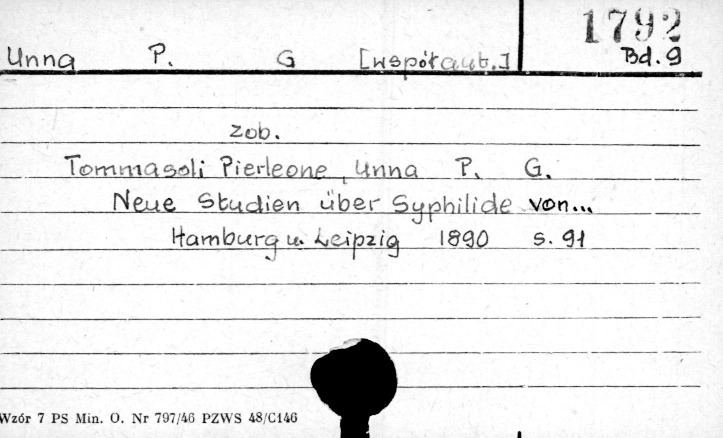 1792
Unna P. G [współaut.] Bd. 9
zob.
Tommasoli Pierleone, Unna P. G.
Neue Studien über Syphilide von...
Hamburg u. Leipzig 1890 s. 91
Wzór 7 PS Min. O. Nr 797/46 PZWS 48/C146